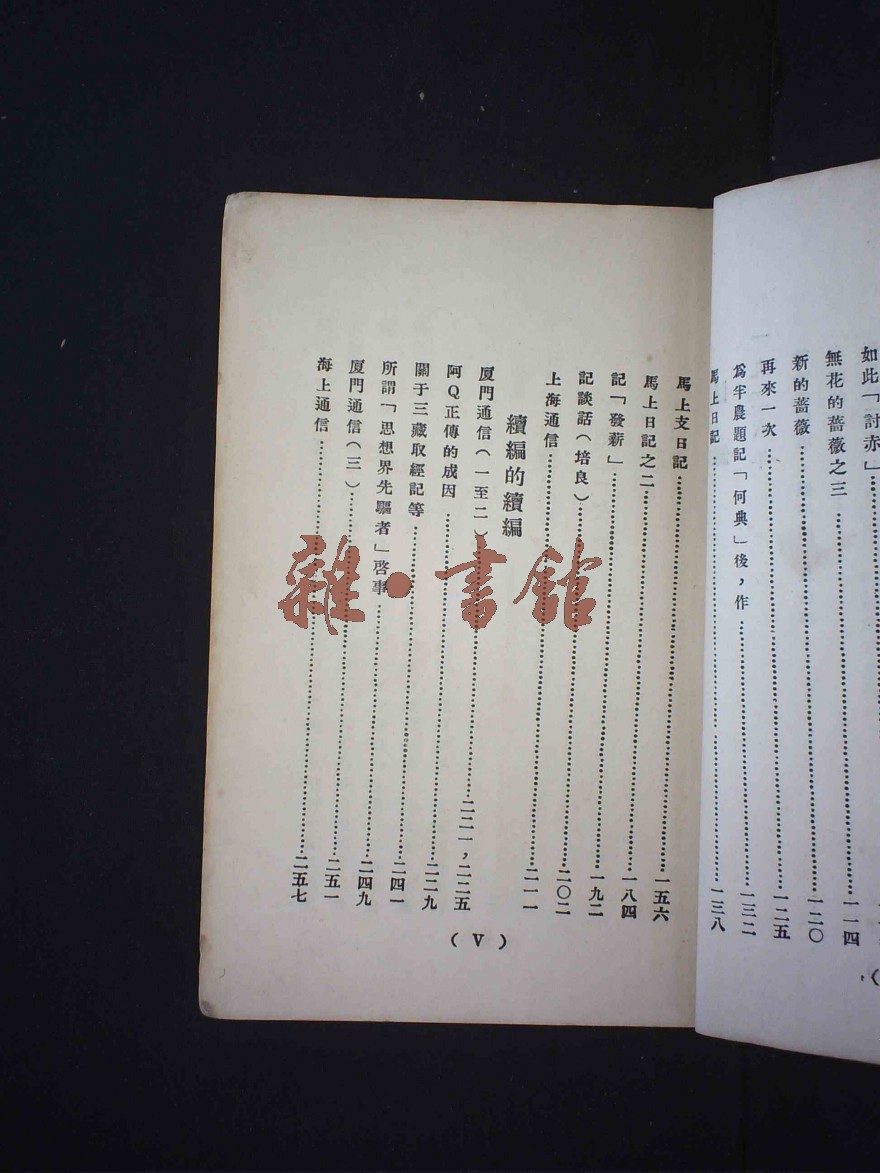 如此「討赤」
無花的薔薇之三……一一四
新的薔薇……一二〇
再來一次……一二五
爲半農題記「何典」後，作……一三二
馬上日記……一三八
馬上支日記……一五六
馬上日記之二……一八四
記「發薪」……一九二
記談話（培良）……二〇二
上海通信……二一一
續編的續編
厦門通信（一至二）……二二一，二二五
阿Q正傳的成因……二二九
關于三藏取經記等……二四一
所謂「思想界先驅者」啓事……二四九
厦門通信（三）……二五一
海上通信……二五七
（V）
雜·書館